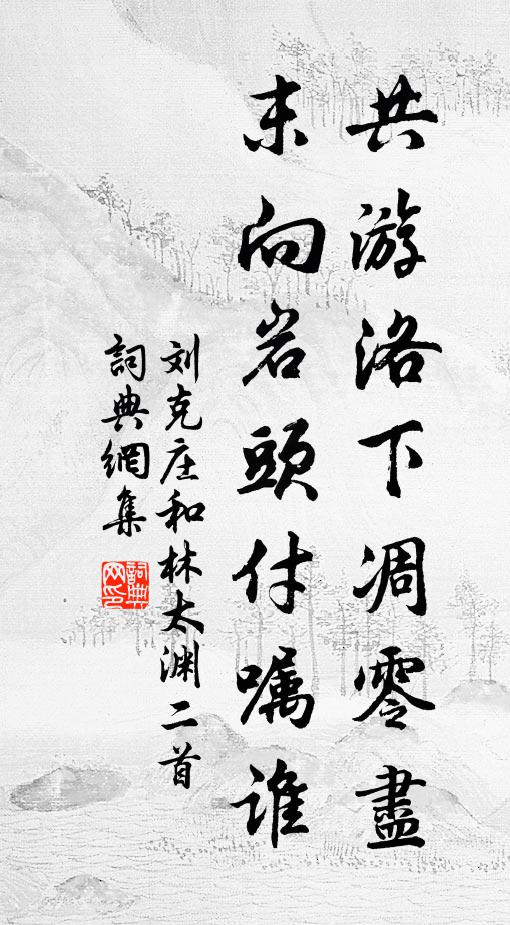 共游洛下凋零盡
末向岩頭付嘱誰
刘克庄和林太渊二首
詞典網集
詞典网印